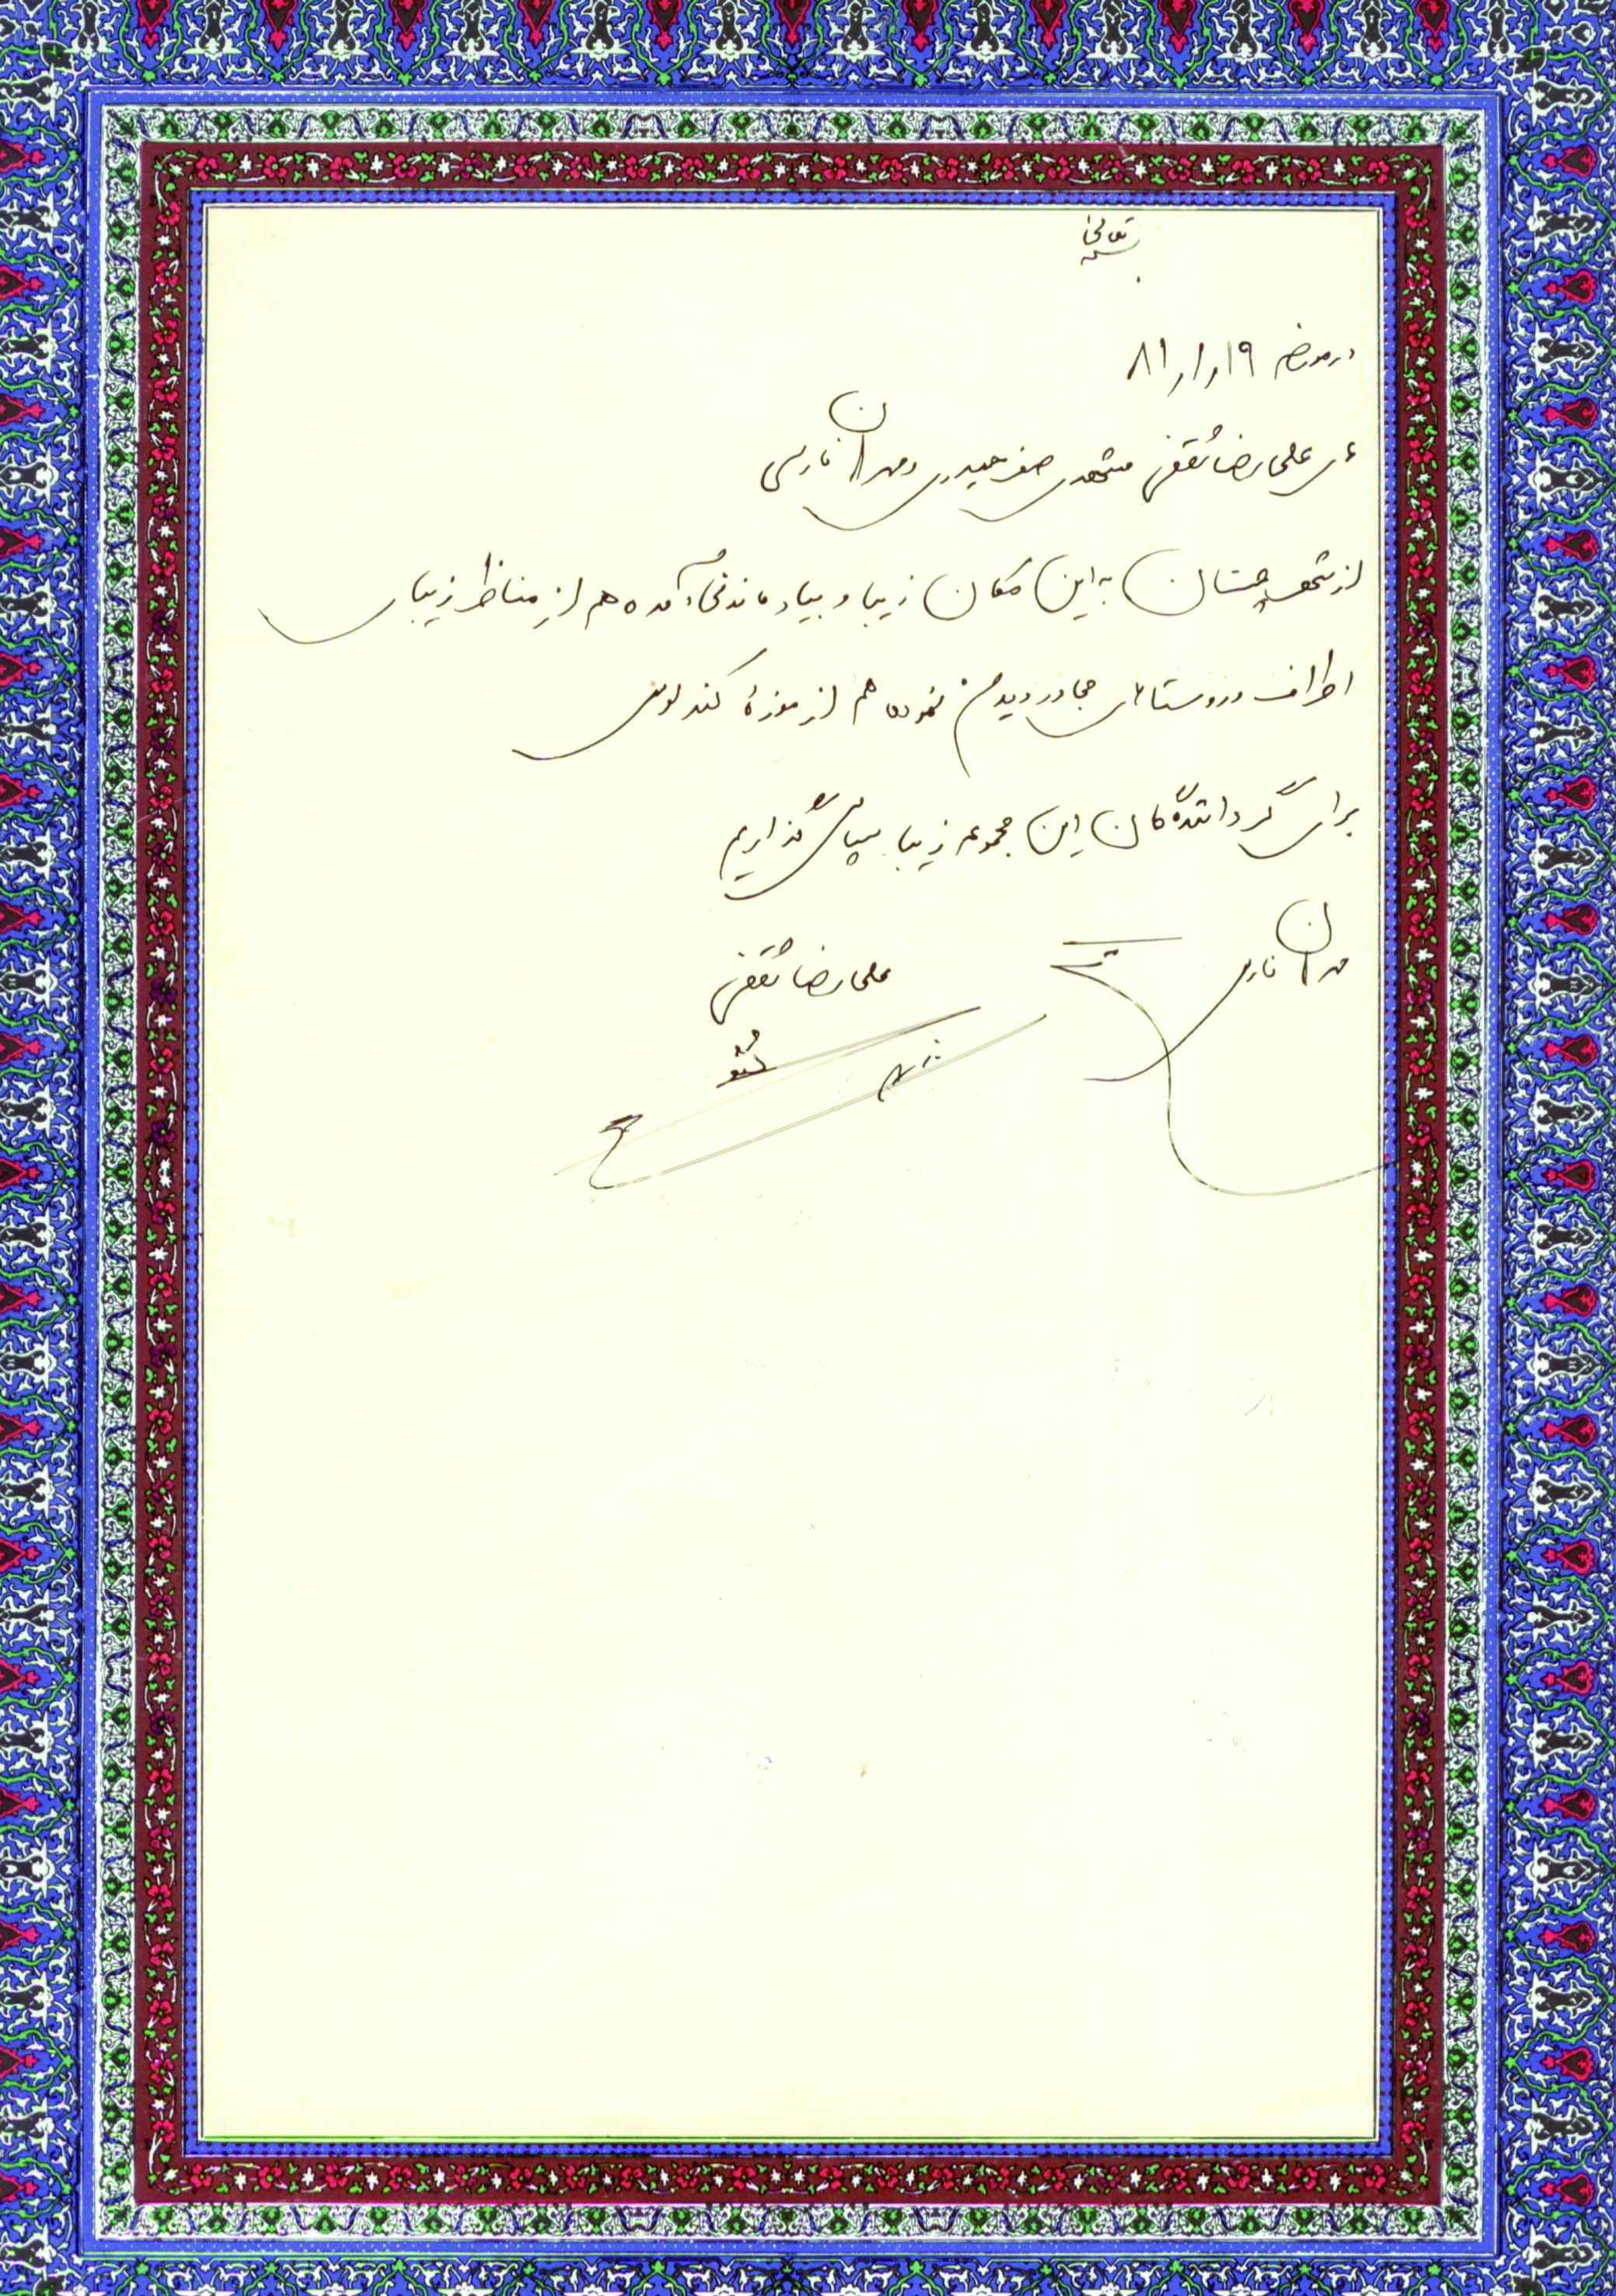 بسمه تعالی
در مورخه ۸۱/۱/۱۹
علیرضا ثقفی مشهدی صفر حیدری و مهران فارسی
از شهر چمستان به این مکان زیبا و بیاد ماندنی آمده هم از مناظر زیبای
اطراف و روستاهای مجاور دیدن نموده هم از موزهٔ کندلوس
برای گردانندگان این مجموعه زیبا سپاس گذاریم
مهران فارسی
علیرضا ثقفی